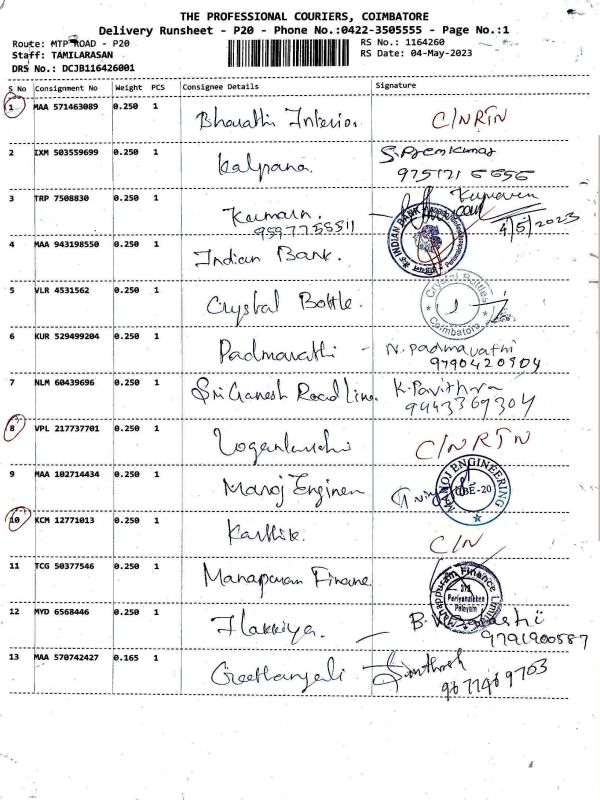 THE PROFESSIONAL COURIERS, COIMBATORE
Delivery Runsheet - P20 - Phone No.:0422-3505555 - Page No.:1
Route: MTP ROAD - P20 RS No.: 1164260
Staff: TAMILARASAN RS Date: 04-May-2023
DRS No.: DCJB116426001
S No Consignment No Weight PCS Consignee Details Signature
1 MAA 571463089 0.250 1 Bharathi Interior C/NRTN
2 IXM 503559699 0.250 1 Kalpana. S. Premkumar
9751716656
3 TRP 7508830 0.250 1 Kumaran.
9597755511 4/5/2023
INDIAN BANK
4 MAA 943198550 0.250 1 Indian Bank.
5 VLR 4531562 0.250 1 Crystal Bottle. Crystal Bottles
Coimbatore
6 KUR 529499204 0.250 1 Padmavathi - N. Padmavathi
9790420904
7 NLM 60439696 0.250 1 Sri Ganesh Road Line. K. Pavithra
9443369304
8 VPL 217737701 0.250 1 C/NRTN
9 MAA 102714434 0.250 1 Manoj Enginen MANOJ ENGINEERING
CBE-20
10 KCM 12771013 0.250 1 Karthik. C/N
11 TCG 50377546 0.250 1 Manapuram Finance Manappuram Finance Limited
Periyanaicken
Palayam
12 MYD 6568446 0.250 1
9791900587
13 MAA 570742427 0.165 1 Geethanjali Santhosh
9677469703